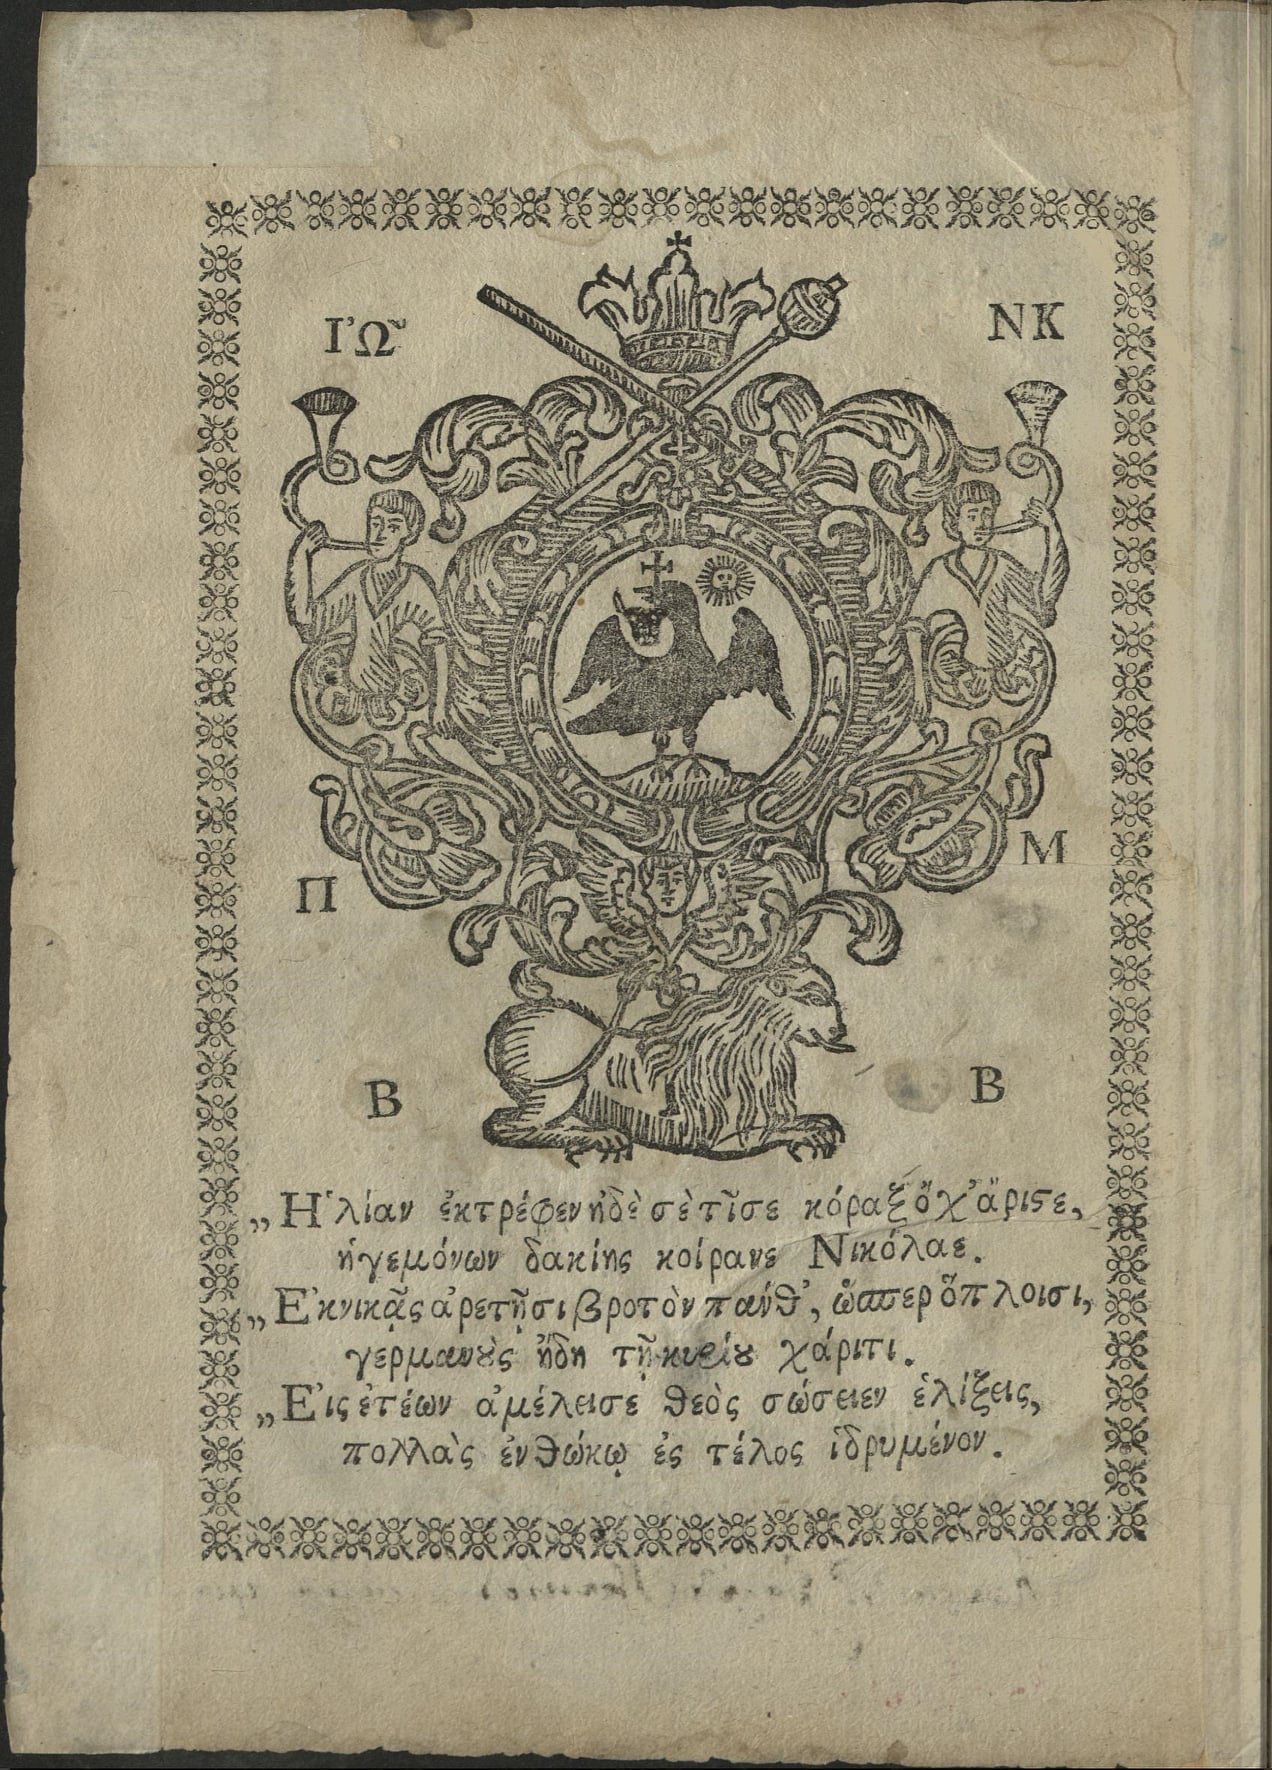 Ἰ'Ω͂ ΝΚ
Π Μ
Β Β
„Ἡλίαν ἐκτρέφεν ἠδὲ σὲ τῖσε κόραξ ὄχ' ἄριϛε,
ἡγεμόνων δακίης κοίρανε Νικόλαε.
„Ἐκνικᾷς ἀρετῇσι βροτὸν πάνθ', ὥσπερ ὅπλοισι,
γερμανοὺς ἤδη τῇ κυρίου χάριτι.
„Εἰς ἐτέων ἀμέλεισε θεὸς σώσειεν ἑλίξεις,
πολλὰς ἐν θώκῳ ἐς τέλος ἱδρυμένον.